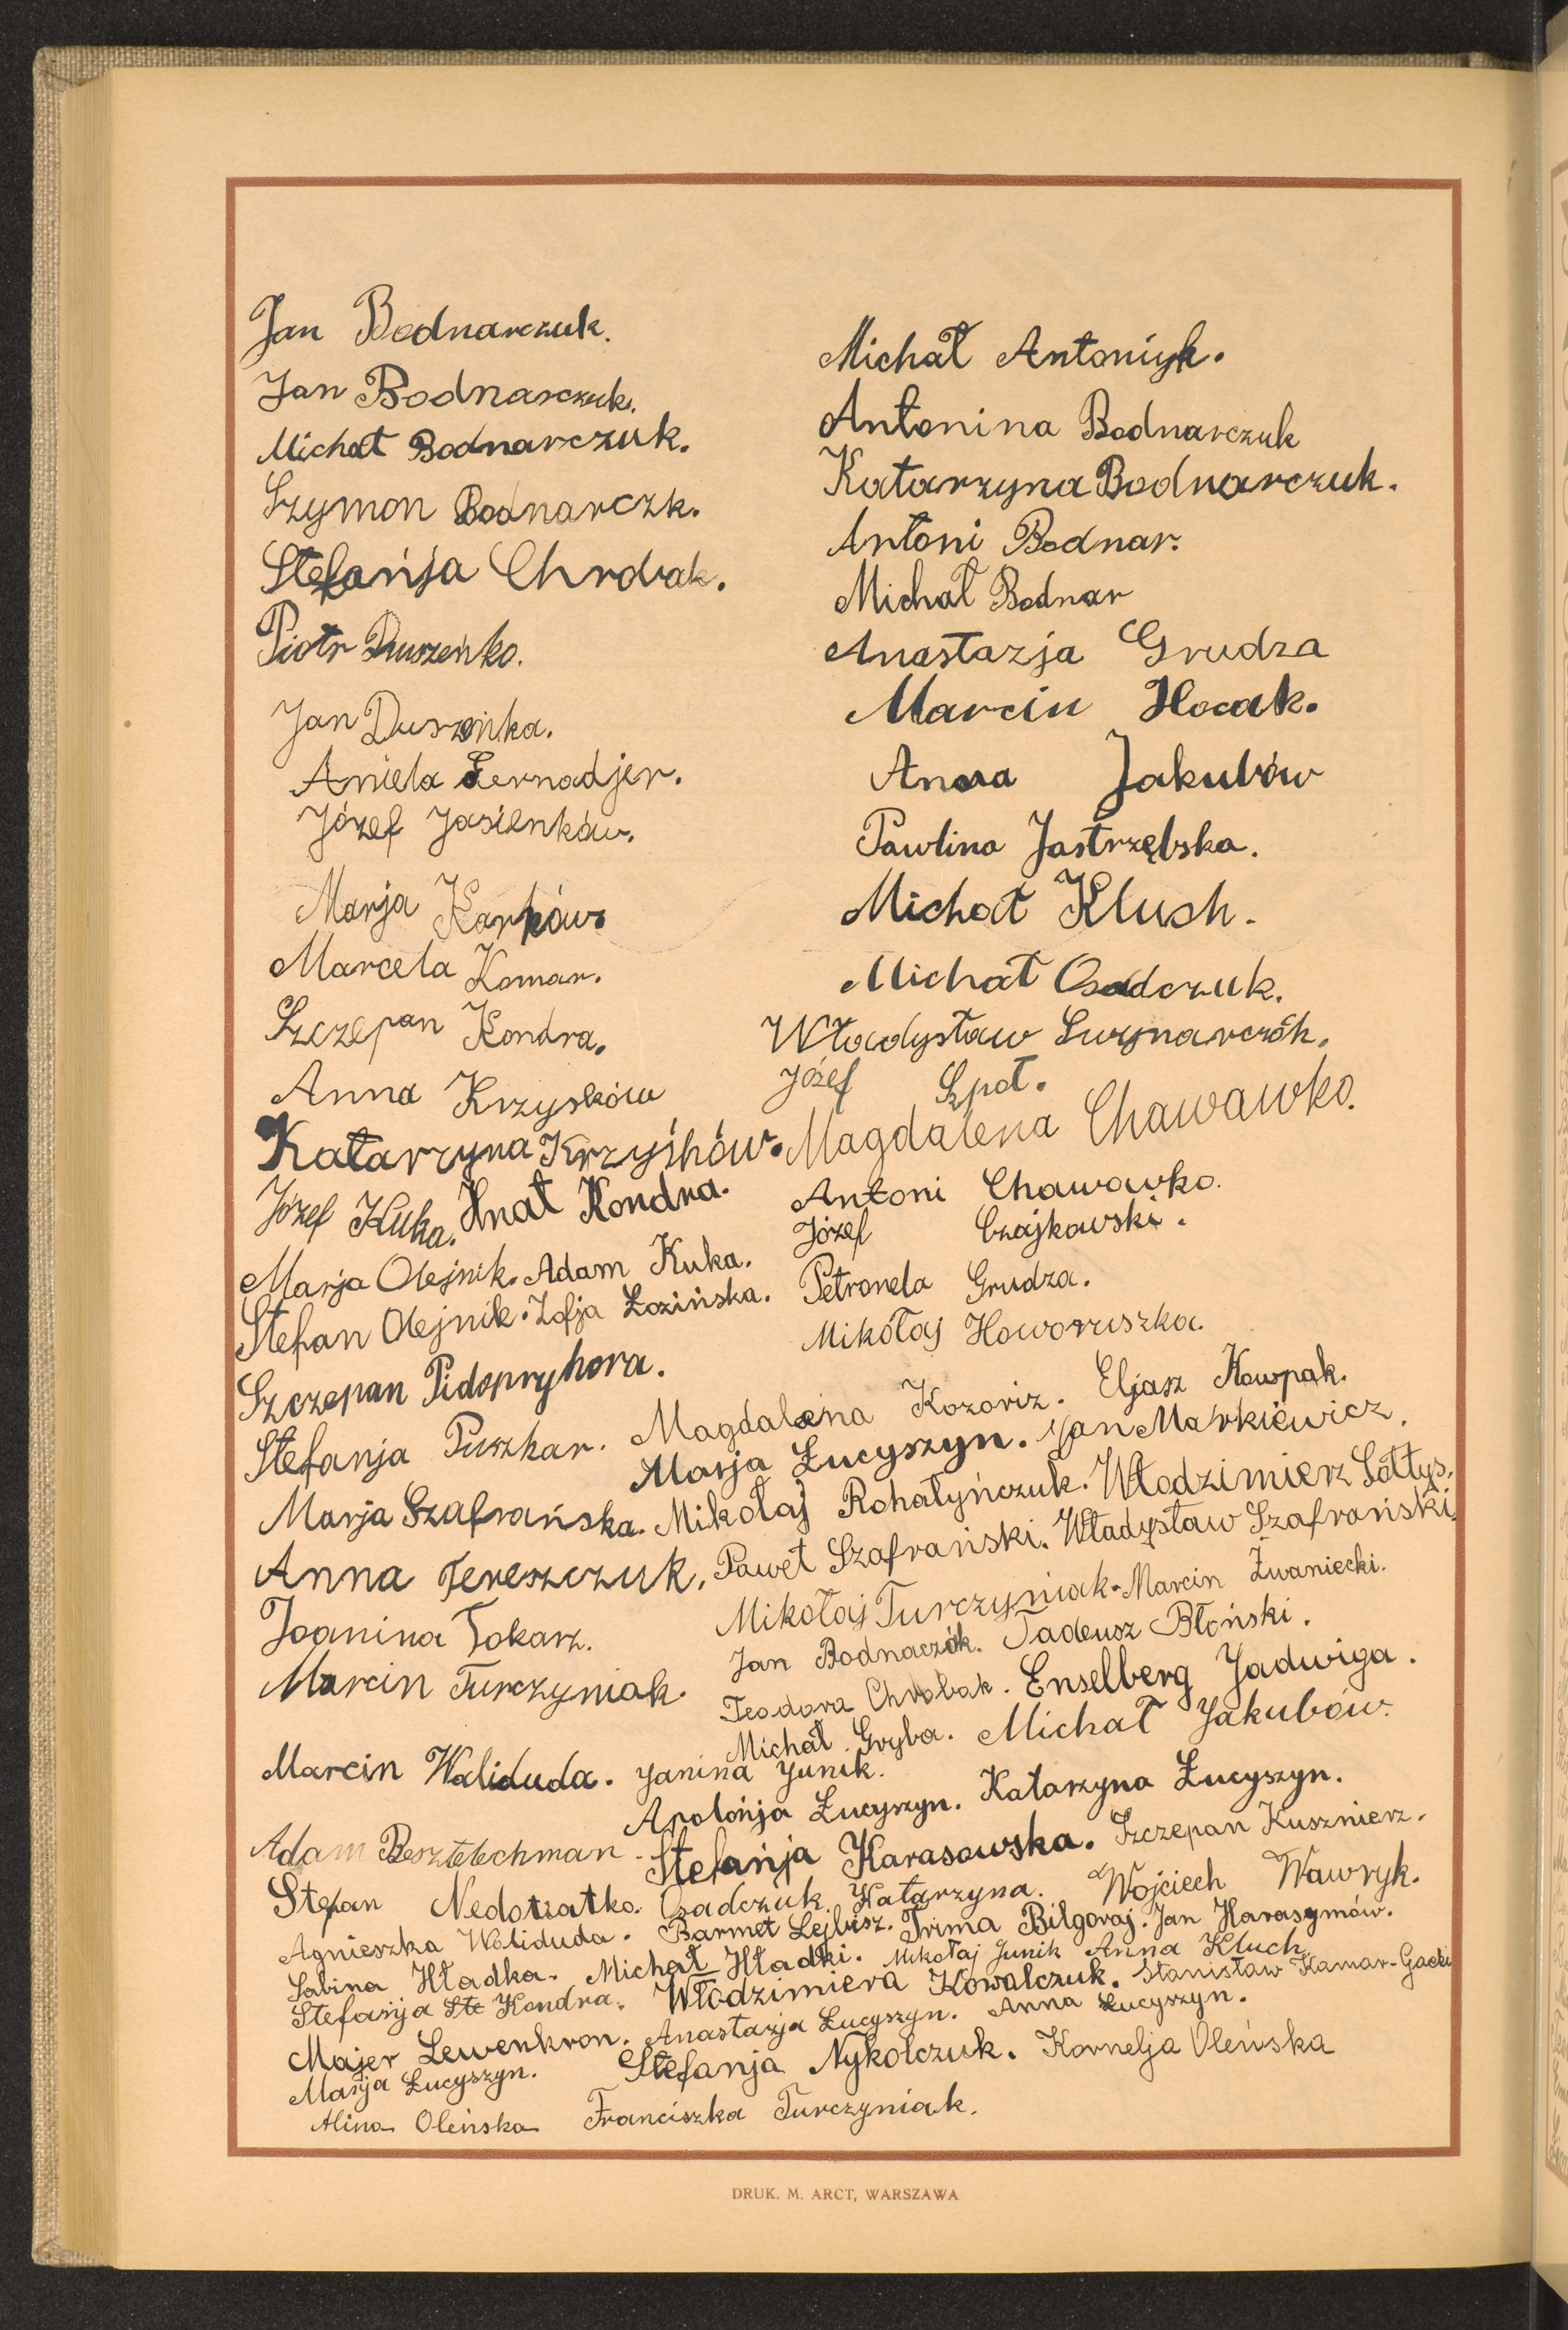 Jan Bodnarczuk.
Jan Bodnarczuk.
Michał Bodnarczuk.
Szymon Bodnarczk.
Stefanja Chrobak.
Piotr Duszeńko.
Jan Duszeńka.
Aniela Fernadjer.
Józef Jasieńków.
Marja Karków
Marcela Komar.
Szczepan Kondra.
Anna Krzyśków
Katarzyna Krzyśków.
Józef Kuka. Hnat Kondra.
Marja Olejnik. Adam Kuka.
Stefan Olejnik. Zofja Łozińska.
Szczepan Pidopryhora.
Stefanja Puszkar.
Marja Szafrańska.
Anna Tereszczuk.
Joanina Tokarz.
Marcin Turczyniak.
Marcin Waliduda.
Michał Antoniyk.
Antonina Bodnarczuk
Katarzyna Bodnarczuk.
Antoni Bodnar.
Michał Bodnar
Anastazja Grudza
Marcin Hocak.
Anna Jakubów
Pawlina Jastrzębska.
Michał Klush.
Michał Osadczuk.
Władysław
Józef Szpot.
Magdalena Chawawko.
Antoni Chawawko.
Józef Czajkowski.
Petronela Grudza.
Mikołaj Howoruszka.
Magdalena Kozoriz. Eljasz Kowpak.
Marja Łucyszyn. Jan Markiewicz.
Mikołaj Rohatyńczuk. Włodzimierz Sołtys.
Paweł Szafrański. Władysław Szafrański.
Mikołaj Turczyniak. Marcin Żwaniecki.
Jan Bodnaczók. Tadeusz Błoński.
Teodora Chrobak. Enselberg Jadwiga.
Michał Gryba. Michał Jakubów.
Janina Junik.
Apolonja Łucyszyn. Katarzyna Łucyszyn.
Adam Besztelechman. Stefanja Karasowska. Szczepan Kusznierz.
Stefan Nedoziatko. Osadczuk Katarzyna. Wojciech Wawryk.
Agnieszka Waliduda. Barmet Lejbisz. Frima Bilgoraj. Jan Harasymów.
Sabina Hładka. Michał Hładki. Mikołaj Junik Anna Kluch.
Stefanja Ste Kondra. Włodzimiera Kowalczuk. Stanisław Kamar-Gacki
Majer Lewenkron. Anastazja Łucyszyn. Anna Łucyszyn.
Marja Łucyszyn. Stefanja Nykolczuk. Kornelja Oleńska
Alina Oleńska Franciszka Turczyniak.
DRUK. M. ARCT, WARSZAWA